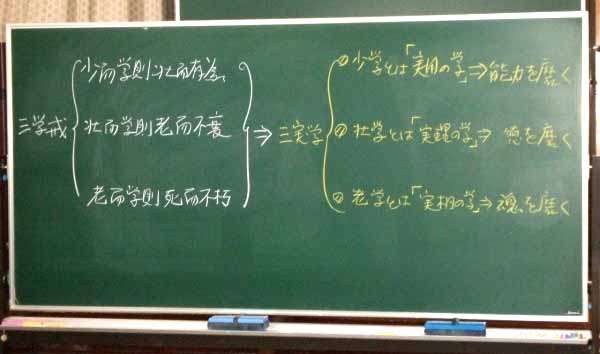 三学戒
少而学則壮而有為
壮而学則老而不衰
老而学則死而不朽
⇒三実学
① 少学とは「実用の学」⇒能力を磨く
② 壮学とは「実践の学」⇒徳を磨く
③ 老学とは「実相の学」⇒魂を磨く